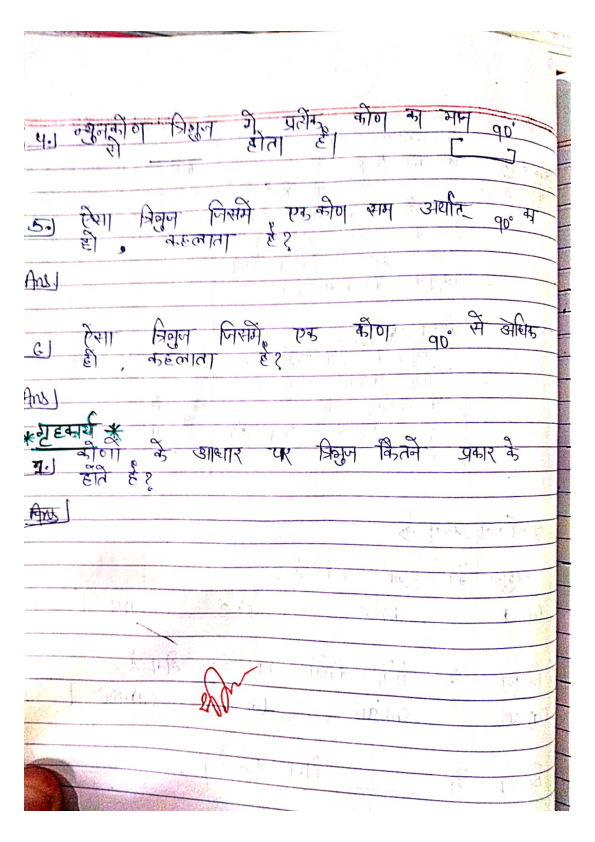 4.] न्युनकोण त्रिभुज मे प्रत्येक कोण का मान 90°
से ____ होता है।
5.] ऐसा त्रिभुज जिसमें एक कोण सम अर्थात् 90° का
हो , कहलाता है?
Ans]
6] ऐसा त्रिभुज जिसमें एक कोण 90° से अधिक
हो , कहलाता है?
Ans]
*गृहकार्य *
प्र.] कोणों के आधार पर त्रिभुज कितने प्रकार के
होते है?
Ans]